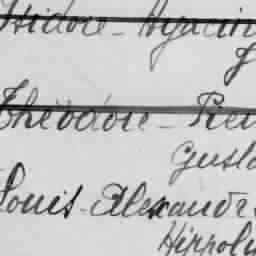 Isidore - Hyacin
Théodore - Pier
Gusta
Louis - Alexandr
Hippoly